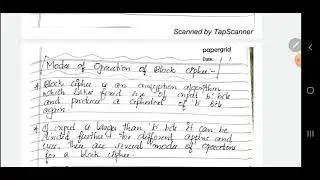 Scanned by TapScanner
papergrid
Date: / /
Modes of Operation of Block Cipher:-
* Block cipher is an encryption algorithm
which takes fixed size of input b bits
and produce a ciphertext of b bits
again.
* If input is larger than b bits it can be
divided further. For different applic and
uses, there are several modes of operations
for a block cipher.